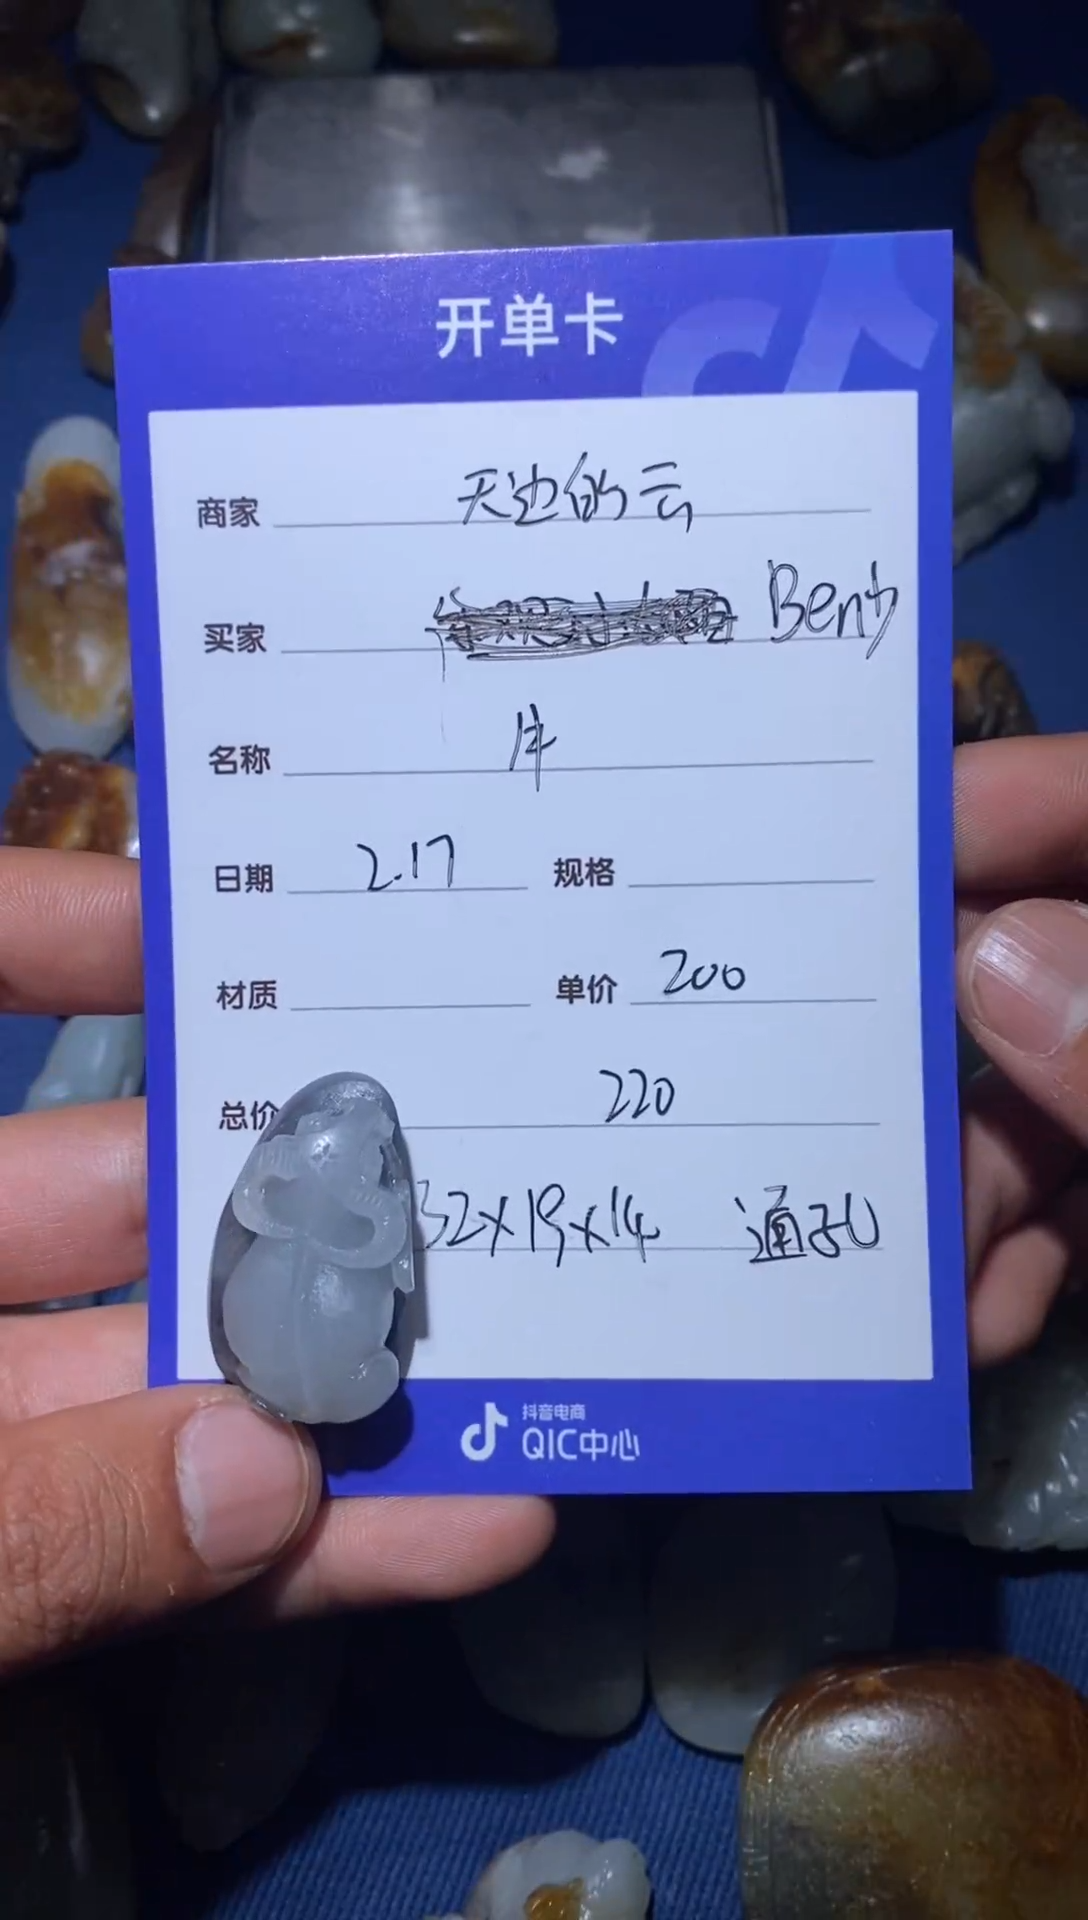 开单卡
商家 天边的云
买家 Benb
名称 牛
日期 2.17 规格
材质 单价 200
总价 220
32x19x14 通孔
抖音电商
QIC中心